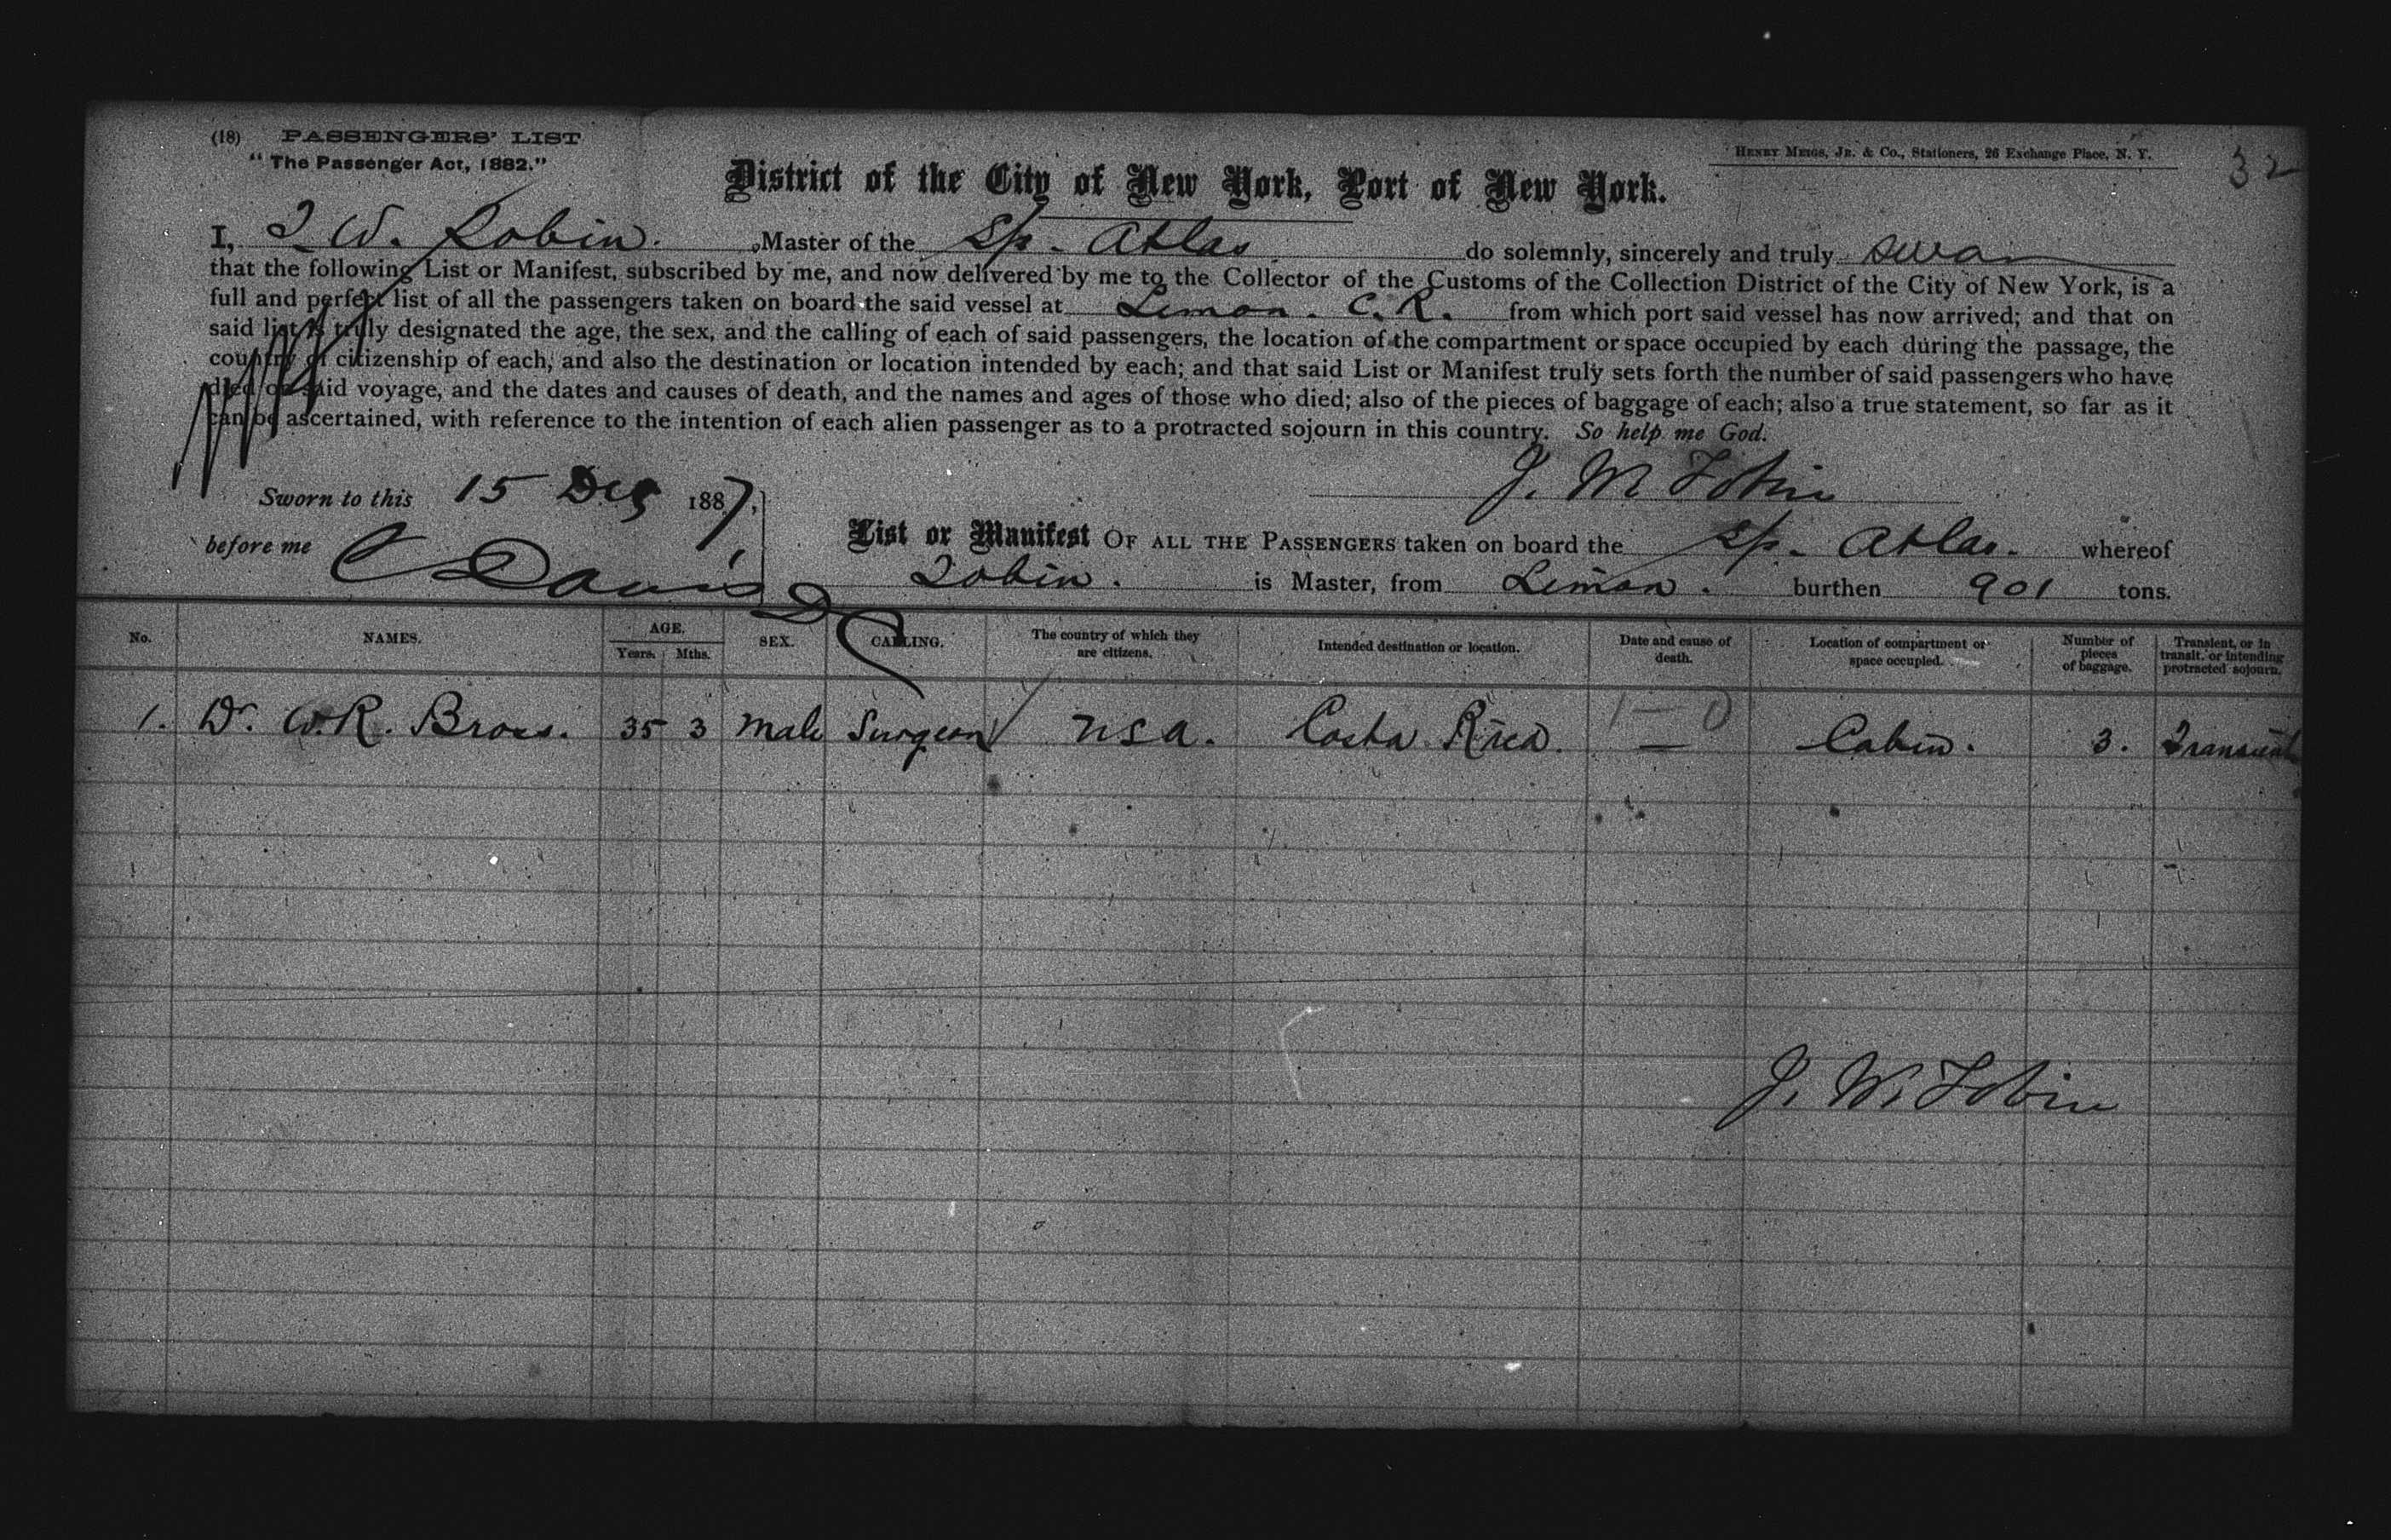 (18) PASSENGERS' LIST
"The Passenger Act, 1882."
HENRY MEIGS, JR. & CO., Stationers, 26 Exchange Place, N. Y.
32
District of the City of New York, Port of New York.
I, J. W. Tobin. Master of the Sp. Atlas do solemnly, sincerely and truly swear
that the following List or Manifest, subscribed by me, and now delivered by me to the Collector of the Customs of the Collection District of the City of New York, is a
full and perfect list of all the passengers taken on board the said vessel at Limon. C. R. from which port said vessel has now arrived; and that on
said list is truly designated the age, the sex, and the calling of each of said passengers, the location of the compartment or space occupied by each during the passage, the
country of citizenship of each, and also the destination or location intended by each; and that said List or Manifest truly sets forth the number of said passengers who have
died on said voyage, and the dates and causes of death, and the names and ages of those who died; also of the pieces of baggage of each; also a true statement, so far as it
can be ascertained, with reference to the intention of each alien passenger as to a protracted sojourn in this country. So help me God.
J. W. Tobin
Sworn to this 15 Dec 1887,
before me C Davis
List or Manifest OF ALL THE PASSENGERS taken on board the Sp. Atlas. whereof
Tobin. is Master, from Limon. burthen 901 tons.
No. NAMES. AGE. Years. Mths. SEX. CALLING. The country of which they are citizens. Intended destination or location. Date and cause of death. Location of compartment or space occupied. Number of pieces of baggage. Transient, or in transit, or intending protracted sojourn.
1. Dr. W.R. Bross. 35 3 Male Surgeon USA. Costa Rica. — Cabin. 3. Transient
J. W. Tobin